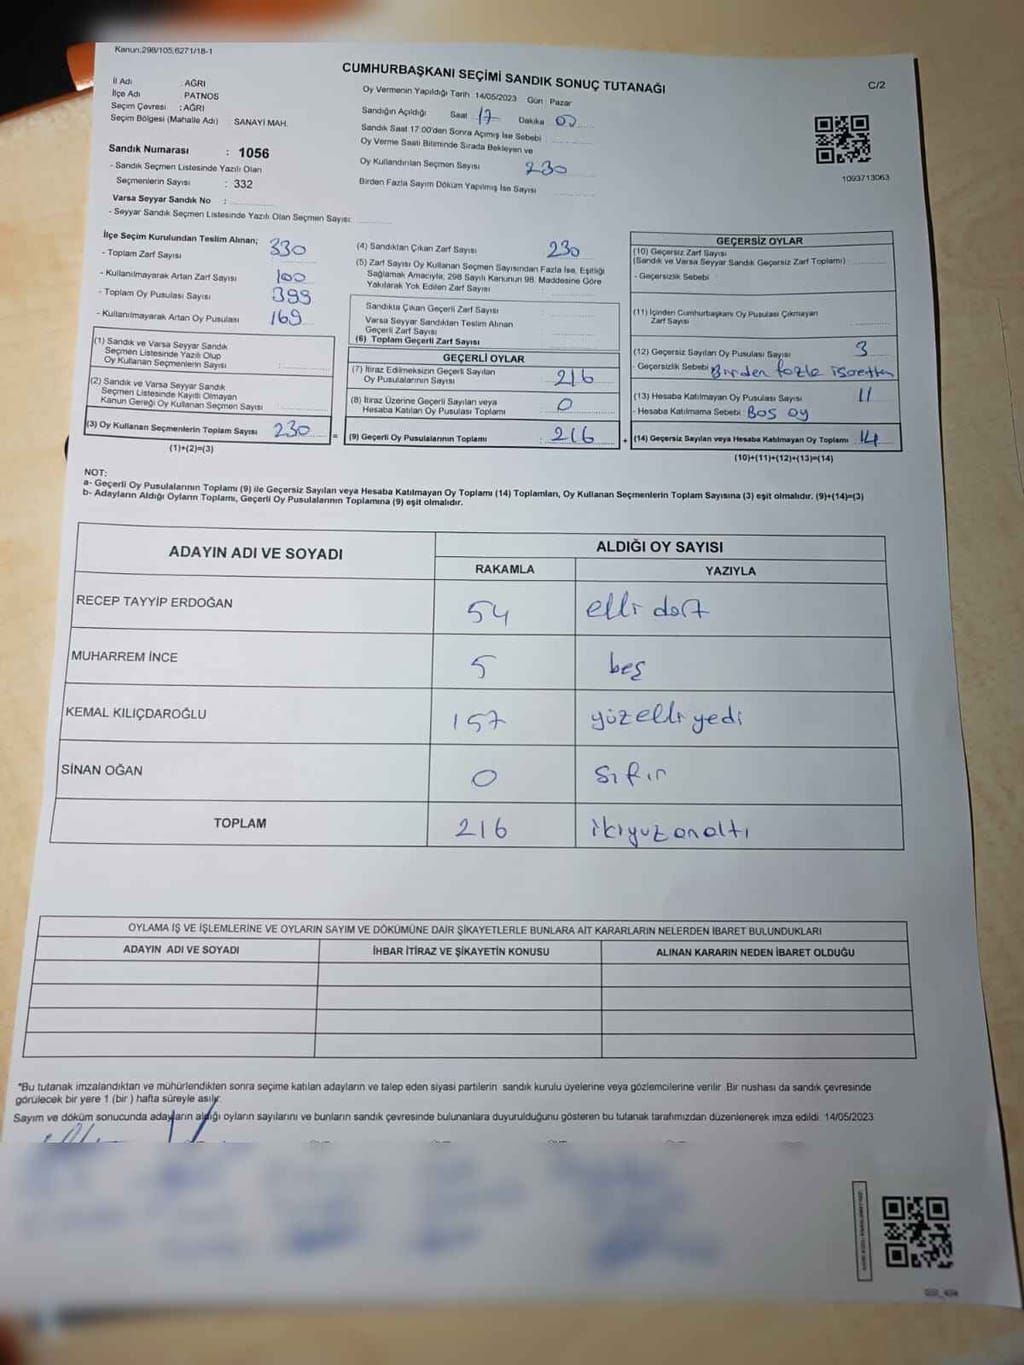 Kanun:298/105,6271/18-1
CUMHURBAŞKANI SEÇİMİ SANDIK SONUÇ TUTANAĞI
C/2
İl Adı : AĞRI
İlçe Adı : PATNOS
Seçim Çevresi : AĞRI
Seçim Bölgesi (Mahalle Adı) : SANAYİ MAH.
Sandık Numarası : 1056
- Sandık Seçmen Listesinde Yazılı Olan
Seçmenlerin Sayısı : 332
Varsa Seyyar Sandık No :
- Seyyar Sandık Seçmen Listesinde Yazılı Olan Seçmen Sayısı:
Oy Vermenin Yapıldığı Tarih :14/05/2023 Gün : Pazar
Sandığın Açıldığı Saat 17 Dakika 00
Sandık Saat 17:00'den Sonra Açımış İse Sebebi
Oy Verme Saati Bitiminde Sırada Bekleyen ve
Oy Kullandırılan Seçmen Sayısı 230
Birden Fazla Sayım Döküm Yapılmış İse Sayısı
1093713063
İlçe Seçim Kurulundan Teslim Alınan;
- Toplam Zarf Sayısı 330
- Kullanılmayarak Artan Zarf Sayısı 100
- Toplam Oy Pusulası Sayısı 399
- Kullanılmayarak Artan Oy Pusulası 169
(1) Sandık ve Varsa Seyyar Sandık
Seçmen Listesinde Yazılı Olup
Oy Kullanan Seçmenlerin Sayısı :
(2) Sandık ve Varsa Seyyar Sandık
Seçmen Listesinde Kayıtlı Olmayan
Kanun Gereği Oy Kullanan Seçmen Sayısı :
(3) Oy Kullanan Seçmenlerin Toplam Sayısı 230
(1)+(2)=(3)
(4) Sandıktan Çıkan Zarf Sayısı 230
(5) Zarf Sayısı Oy Kullanan Seçmen Sayısından Fazla İse, Eşitliği
Sağlamak Amacıyla, 298 Sayılı Kanunun 98. Maddesine Göre
Yakılarak Yok Edilen Zarf Sayısı
Sandıkta Çıkan Geçerli Zarf Sayısı
Varsa Seyyar Sandıktan Teslim Alınan
Geçerli Zarf Sayısı
(6) Toplam Geçerli Zarf Sayısı
GEÇERLİ OYLAR
(7) İtiraz Edilmeksizin Geçerli Sayılan
Oy Pusulalarının Sayısı 216
(8) İtiraz Üzerine Geçerli Sayılan veya
Hesaba Katılan Oy Pusulası Toplamı 0
= (9) Geçerli Oy Pusulalarının Toplamı : 216 +
GEÇERSİZ OYLAR
(10) Geçersiz Zarf Sayısı
(Sandık ve Varsa Seyyar Sandık Geçersiz Zarf Toplamı)
- Geçersizlik Sebebi :
(11) İçinden Cumhurbaşkanı Oy Pusulası Çıkmayan
Zarf Sayısı
(12) Geçersiz Sayılan Oy Pusulası Sayısı 3
- Geçersizlik Sebebi Birden fazla isaretten
(13) Hesaba Katılmayan Oy Pusulası Sayısı 11
- Hesaba Katılmama Sebebi : Bos oy
(14) Geçersiz Sayılan veya Hesaba Katılmayan Oy Toplamı 14
(10)+(11)+(12)+(13)=(14)
NOT:
a- Geçerli Oy Pusulalarının Toplamı (9) ile Geçersiz Sayılan veya Hesaba Katılmayan Oy Toplamı (14) Toplamları, Oy Kullanan Seçmenlerin Toplam Sayısına (3) eşit olmalıdır. (9)+(14)=(3)
b- Adayların Aldığı Oyların Toplamı, Geçerli Oy Pusulalarının Toplamına (9) eşit olmalıdır.
ADAYIN ADI VE SOYADI
ALDIĞI OY SAYISI
RAKAMLA YAZIYLA
RECEP TAYYİP ERDOĞAN 54 elli dört
MUHARREM İNCE 5 beş
KEMAL KILIÇDAROĞLU 157 yüzelli yedi
SİNAN OĞAN 0 sıfır
TOPLAM 216 ikiyuz onaltı
OYLAMA İŞ VE İŞLEMLERİNE VE OYLARIN SAYIM VE DÖKÜMÜNE DAİR ŞİKAYETLERLE BUNLARA AİT KARARLARIN NELERDEN İBARET BULUNDUKLARI
ADAYIN ADI VE SOYADI İHBAR İTİRAZ VE ŞİKAYETİN KONUSU ALINAN KARARIN NEDEN İBARET OLDUĞU
*Bu tutanak imzalandıktan ve mühürlendikten sonra seçime katılan adayların ve talep eden siyasi partilerin sandık kurulu üyelerine veya gözlemcilerine verilir. Bir nüshası da sandık çevresinde
görülecek bir yere 1 (bir ) hafta süreyle asılır.
Sayım ve döküm sonucunda adayların aldığı oyların sayılarını ve bunların sandık çevresinde bulunanlara duyurulduğunu gösteren bu tutanak tarafımızdan düzenlenerek imza edildi. 14/05/2023